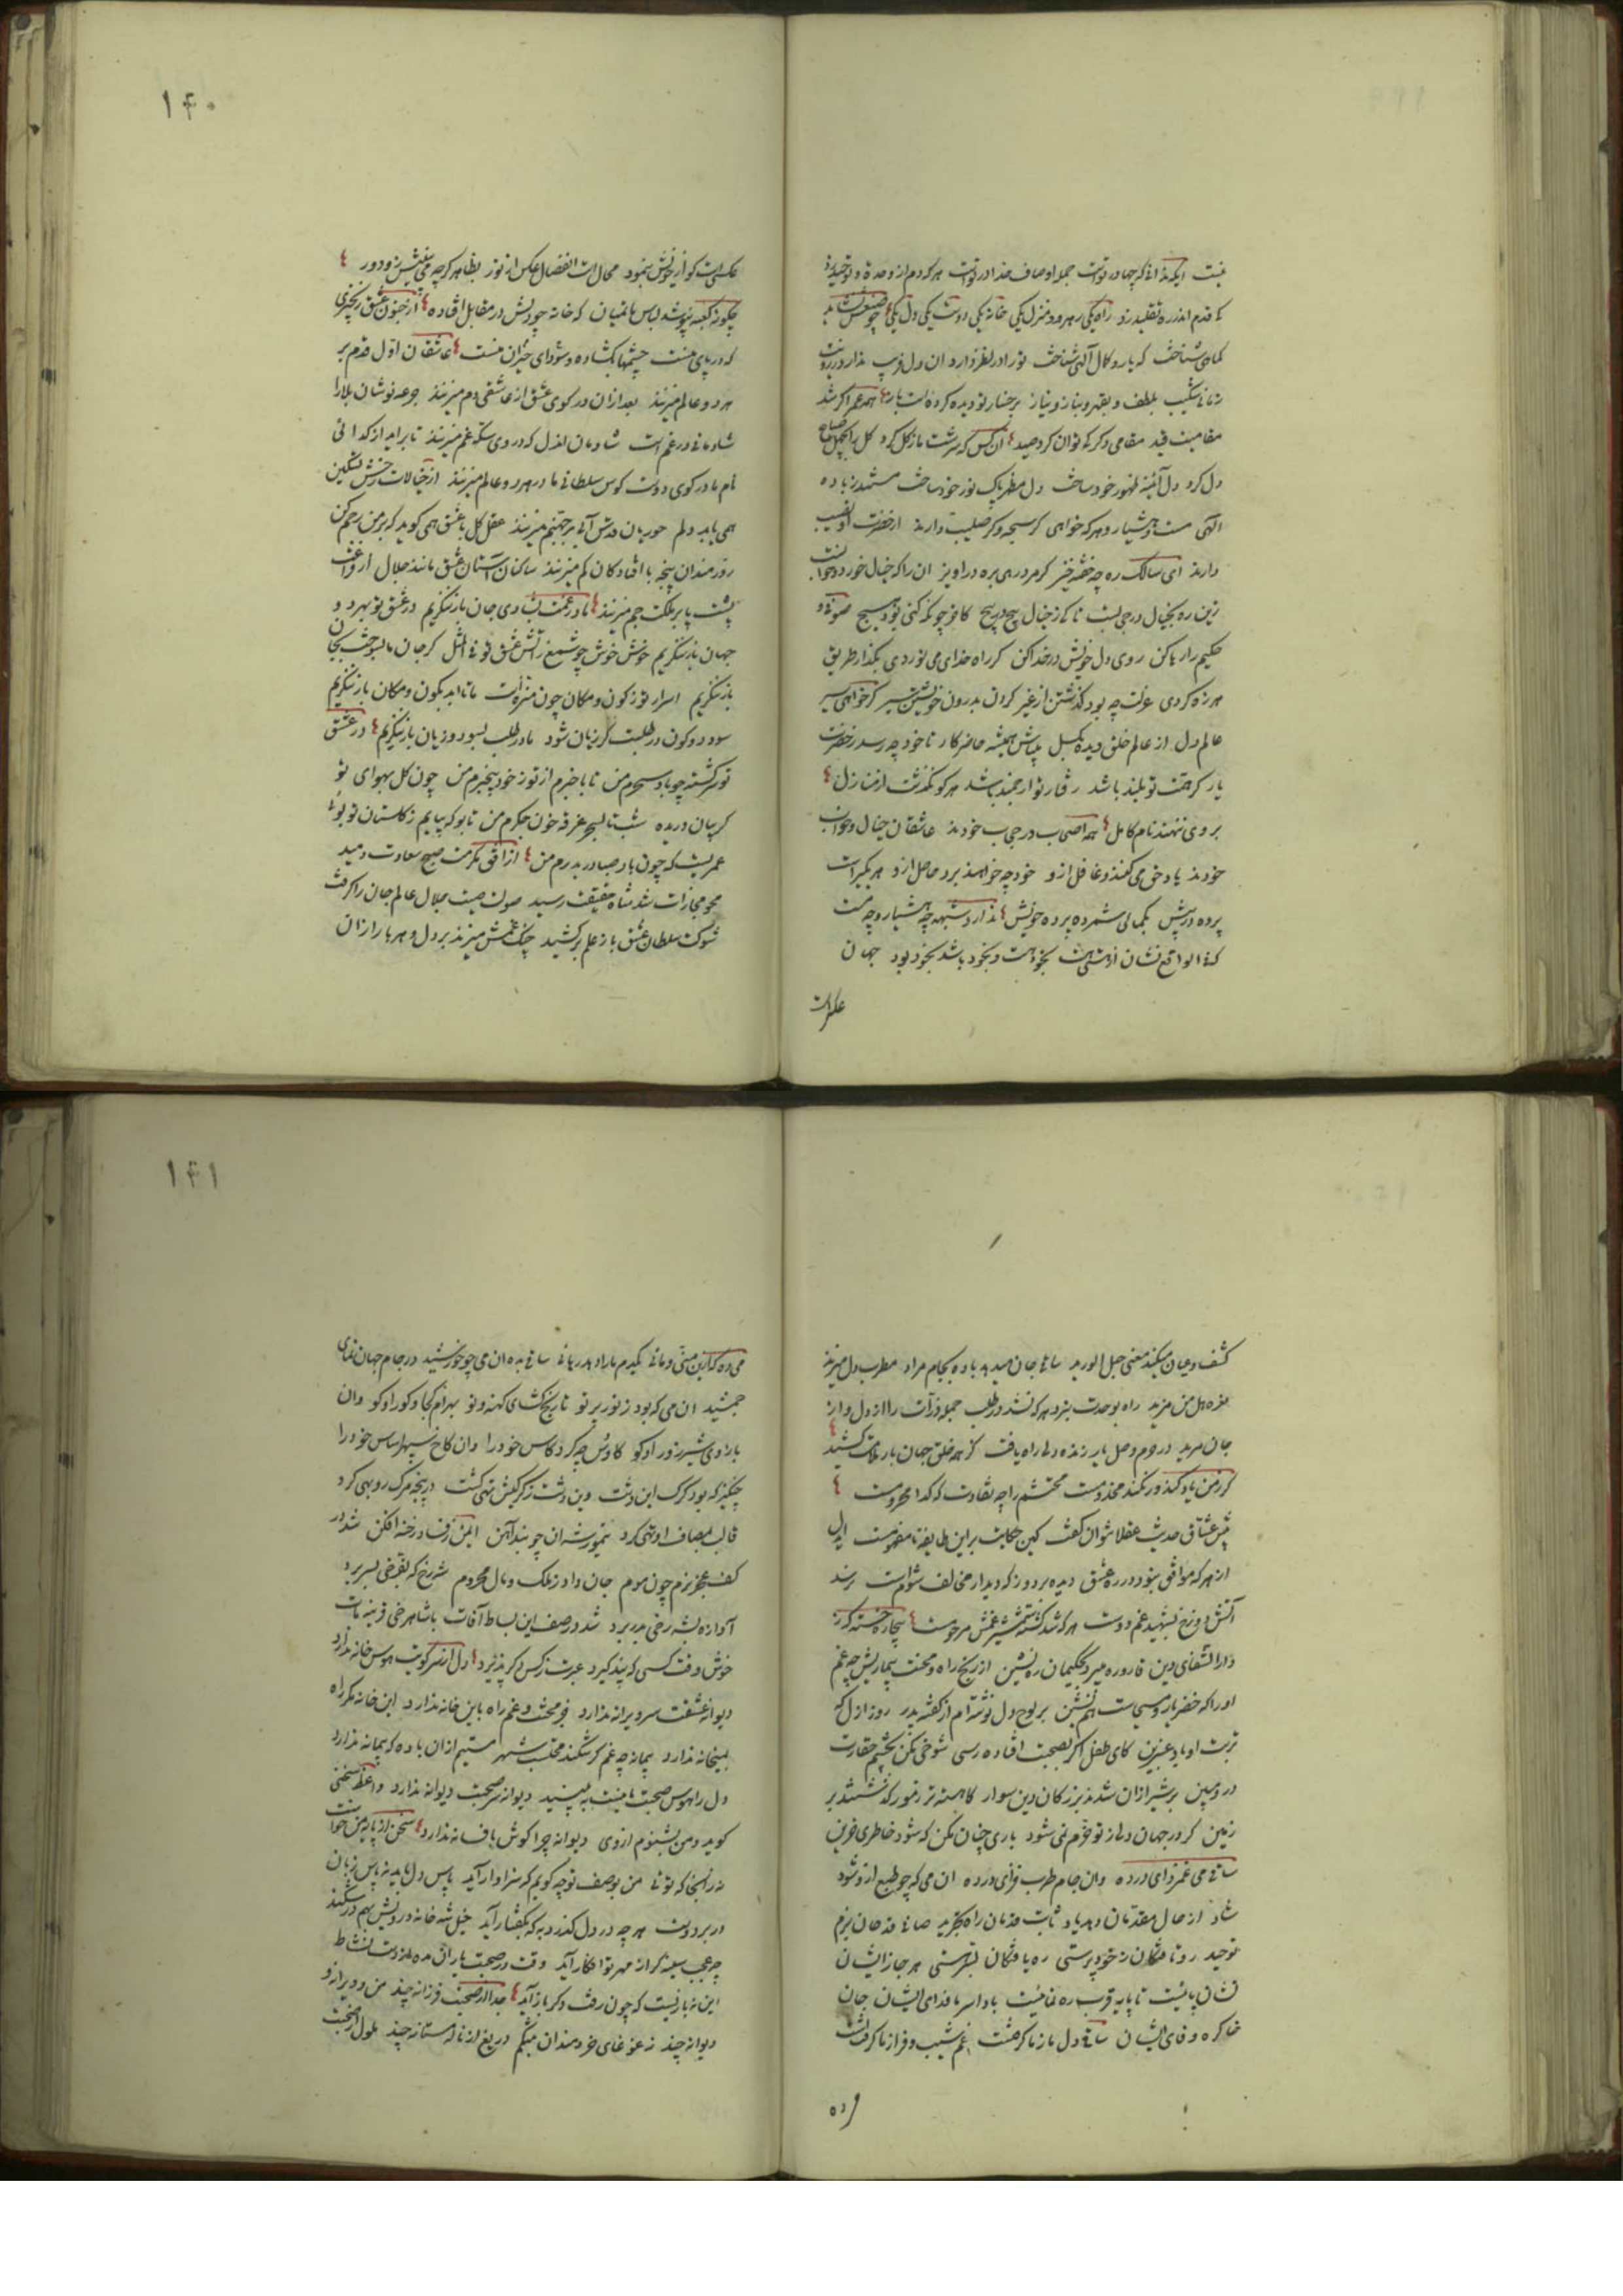 نیست ایکه ندانی که چها در تو است جمله اوصاف خدا در تو است هر که دم از وحدت و توحید زد
کی قدم اندر ره تقلید زد راه یکی رهرو و منزل یکی خانه یکی دوست یکی دل یکی
شناخت که باید و کمال آلهی شناخت
شکیب بلطف و بقهر و بناز و نیاز بر رخسار تو دیده کرده است باز همه عمر اگر شد
مقامیت قید مقامی دگر کی توان کرد صید آن کس که سرشت ما ز گل کرد گل را
دل کرد دل آئینه ظهور خود ساخت دل مظهر پاک نور خود ساخت مستند ز باده
الهی مست و هشیار و هر که خواهی گر سبحه و گر صلیب دارند از حضرت او نصیب
دارند ای سالک ره چه خفته خیز گر مرد رهی بره در آویز آن را که خیال خورد و خواب است
زین ره بخیال در حجاب است تا کی ز خیال پیچ در پیچ آخر چو نگه کنی بود هیچ
حکیم را رها کن روی دل خویش در خدا کن گر راه خدای می نوردی بگذار طریق
هرزه گردی عزلت چه بود گذشتن از غیر کردن بدرون خویشتن سیر گر خواهی سیر
عالم دل از عالم خلق دیده بگسل میباش همیشه حاضر کار تا خود چه رسد ز حضرت
یار گر همت تو بلند باشد رفتار تو ارجمند باشد هر کو نگذشت از منازل
بر وی ننهند نام کامل همه اصحاب در حجاب خودند عاشقان خیال و خواب
خودند یاد حق می کنند و غافل از و خود چه خواهند برد حاصل از و هر یکی راست
پرده در پیش بگمانی شمرده پرده خویش ندارد شبهه چه هشیار و چه مست
که فی الواقع نشان از هستی هست بخود هست و بخود باشد بخود بود جهان
عکسی است
۱۴۰
عکسی است کو از خویش بنمود محال است انفصال عکس از نور بظاهر گرچه می بینیش ز و دور
چگونه کعبه نپوشد لباس ماتمیان که خانه چو دلش در مقابل افتاده از جنون عشق زنجیری
که در پای منست چشمها بگشاده و سودای حیران منست عاشقان اول قدم بر
هر دو عالم میزنند بعد از آن در کوی عشق از عاشقی دم میزنند جرعه نوشان بلا را
شادمانی در غم است شادمان آندل که در وی سکه غم میزنند تا بر آید از گدائی
نام ما در کوی دوست کوس سلطانی ما در هر دو عالم میزنند از خیالات رخش تسکین
همی یابد دلم حوریان قدس آبی بر جهنم میزنند عقل کل با عشق همی گوید که بر من رحم کن
زورمندان پنجه با افتادگان کم میزنند ساکنان آستان عشق مانند جلال از
پشت پا بر ملکت جم میزنند ما در غمت بشادی جان باز ننگریم در عشق تو بهر دو
جهان باز ننگریم خوش خوش چو شمع ز آتش عشق تو فی المثل گر جان ما بسوخت بجان
باز ننگریم اسرار تو ز کون و مکان چون منزه است ما تا ابد بکون و مکان باز ننگریم
سود دو کون در طلبت گر زیان شود ما در طلب بسود و زیان باز ننگریم در عشق
تو سرگشته چو باد سحرم من تا با خبرم از تو ز خود بیخبرم من چون گل بهوای تو
گریبان دریده شبتا بسحر غرقه خون جگرم من تا بو که بیابم ز گلستان تو بوئی
عمریست که چون باد صبا در بدرم من از افق مکرمت صبح سعادت دمید
محو مجازات شد شاه حقیقت رسید صولت صیت جلال عالم جان را گرفت
شوکت سلطان عشق باز علم بر کشید چنگ غمش میزند بر دل و هر بار از آن
کشف و عیان میکند معنی حبل الورید ساقی جان میدهد باده بجام مراد مطرب دل میزند
نعره هل من مزید راه بوحدت نبرد هر که نشد در طلب جمله ذرات را از دل و از
جان مرید در حرم وصل یار زنده دلی راه یافت کز همه خلق جهان بار ملامت کشید
گر ز من یاد کند ور نکند مخدومست محتشم را چه تفاوت که گدا محرومست
پیش عشاق حدیث عقلا نتوان گفت کین حکایت بر این طایفه نامفهومست ایدل
از هر که موافق نبود در ره عشق دیده بر دوز که دیدار مخالف شوم است نرسد
آتش دوزخ بشهید غم دوست هر که شد کشته شمشیر غمش مرحومست بیچاره خسته که ز
دار الشفای دین قاروره میبرد بحکیمان ره نشین از رنج راه و محنت بیماریش چه غم
او را که خضر یار و مسیحاست همنشین بر لوح دل نوشته ام از گفته پدر روز ازل که
تربت او باد عنبرین کای طفل اگر بصحبت افتاده رسی شوخی مکن بچشم حقارت
در و مبین بر شیر از آن شدند بزرگان دین سوار کاهسته تر ز مور گذشتند بر
زمین گر در جهان دلی ز تو خرم نمی شود باری چنان مکن که شود خاطری حزین
ساقی می غمزدای در ده وان جام طرب فزای در ده آن می که چو طبع از و شود
شاد از حال مقدمان دهد یاد ثابت قدمان راه تجرید صافی قدحان بزم
توحید رو تافتگان ز خود پرستی ره یافتگان بسر هستی هر جا ز ایشان
نشان پائیست تا پایه قرب ره نمائیست بادا سر ما فدای ایشان جان
خاک ره وفای ایشان ساقی دل ما ز ما گرفتست غم شیب و فراز ما گرفتست
می ده
۱۴۱
می ده که ازین منی و مائی یکدم ما را دهد رهائی ساقی بده آن می چو خورشید در جام جهان نمای
جمشید آن می که بود ز نور پرتو تاریخ گشای کهنه و نو بهرام کجا و گور او کو وان
بازوی شیر زور او کو کاوس چه کرد کاس خود را وان کاخ سپهر اساس خود را
چنگیز که بود گرگ این دشت وین دشت ز گرگیش تهی گشت در پنجه مرگ روبهی کرد
قالب بمصاف او تهی کرد تیمور شه آن چو بند آهن ایمن ز فنا و رخنه افکن شد در
کف عجز نرم چون موم جان داد ز ملک و مال محروم شهرخ که بفرخی بسر برد
آوازه بشه رخی بدر برد شد در صف این بساط آفات با شاهرخی قرینه مات
خوش وقت کسی که پند گیرد عبرت ز کس دگر پذیرد دل از سر کویت هوس خانه ندارد
دیوانه عشقت سر ویرانه ندارد جز محنت و غم راه باین خانه ندارد این خانه مگر راه
بمیخانه ندارد پیمانه چه غم گر شکند محتسب شهر مستیم از آن باده که پیمانه ندارد
دل را هوس صحبت ما نیست ببینید دیوانه سر صحبت دیوانه ندارد واعظ سخنی
گوید و من نشنوم از وی دیوانه چرا گوش بافسانه ندارد سخن از پایه من خواست
نه ز آنجا که توئی من بوصف تو چه گویم که سزاوار آید پاس دل باید نه پاس زبان
در بر دوست هر چه در دل گذرد به که بگفتار آید خیل شه خانه درویش بهم در شکند
چه عجب سینه گر از مهر تو افکار آید وقت در صحبت یاران مده از دست نشاط
این نه باریست که چون رفت دگر باز آید جدا از صحبت فرزانه چند من و ویرانه و
دیوانه چند ز غوغای خردمندان به تنگم دریغ از ناله مستانه چند ملول از صحبت